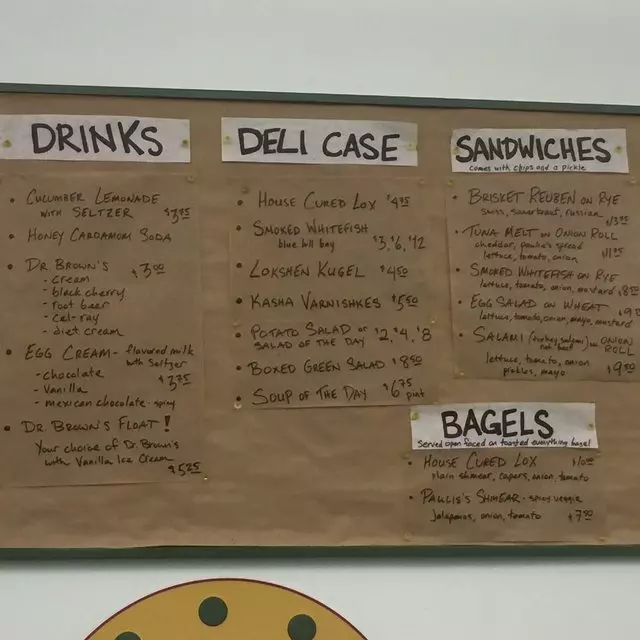 DRINKS
• CUCUMBER LEMONADE
WITH SELTZER $3.75
• HONEY CARDAMOM SODA
• DR. BROWN'S $3.00
- cream
- black cherry
- root beer
- cel-ray
- diet cream
• EGG CREAM - flavored milk
with seltzer
- chocolate $2.75
- Vanilla
- mexican chocolate - spicy
• DR. BROWN'S FLOAT!
Your choice of Dr. Brown's
with Vanilla Ice Cream
$5.25
DELI CASE
• HOUSE CURED LOX $4.95
• SMOKED WHITEFISH
blue hill bay $3, $6, $12
• LOKSHEN KUGEL $4.50
• KASHA VARNISHKES $5.50
• POTATO SALAD or $2, $4, $8
SALAD OF THE DAY
• BOXED GREEN SALAD $8.50
• SOUP OF THE DAY $6.75
pint
SANDWICHES
comes with chips and a pickle
• BRISKET REUBEN ON RYE
swiss, sauerkraut, russian
• TUNA MELT ON ONION ROLL
cheddar, paulie's spread
lettuce, tomato, onion
• SMOKED WHITEFISH ON RYE
lettuce, tomato, onion, mustard
• EGG SALAD ON WHEAT
lettuce, tomato, onion, mayo, mustard
• SALAMI (turkey salami) ON ONION
not beef ROLL
lettuce, tomato, onion
pickles, mayo $9.50
BAGELS
Served open faced on toasted everything bagel
• HOUSE CURED LOX
plain shmear, capers, onion, tomato
• PAULIE'S SHMEAR - spicy veggie
Jalapenos, onion, tomato